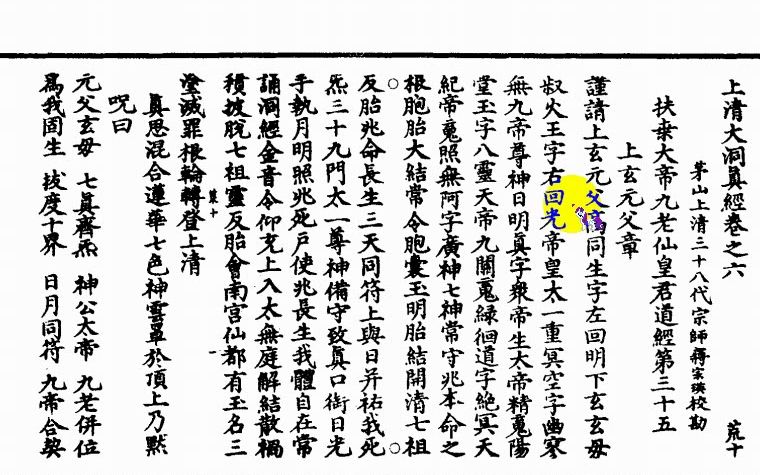 上清大洞眞經卷之六
荒十
茅山上清三十八代宗師蔣宗瑛校勘
扶桒大帝九老仙皇君道經第三十五
上玄元父章
謹請上玄元父高同生字左回明下玄玄母
叔火王字右回光帝皇太一重冥空字幽寥
無九帝尊神日明眞字衆帝生太帝精魂陽
堂玉字八靈天帝九關魂緑徊道字絶冥天
紀帝魂照無阿字廣神七神常守兆本命之
根胞胎大結常令胞囊玉明胎結開清七祖
反胎兆命長生三天同符上與日并祐我死
炁三十九門太一尊神備守致眞口銜日光
手執月明照兆死戶使兆長生我體自在常
誦洞經金音令仰充上入太無庭解結散禍
積披脫七祖靈反胎會南宮仙都有玉名三
塗滅罪根輪轉登上清
眞思混合遵華七色神雲罩於頂上乃黙
呪曰
元父玄母 七眞齊炁 神公太帝 九老併位
爲我固生 拔度十界 日月同符 九帝合契